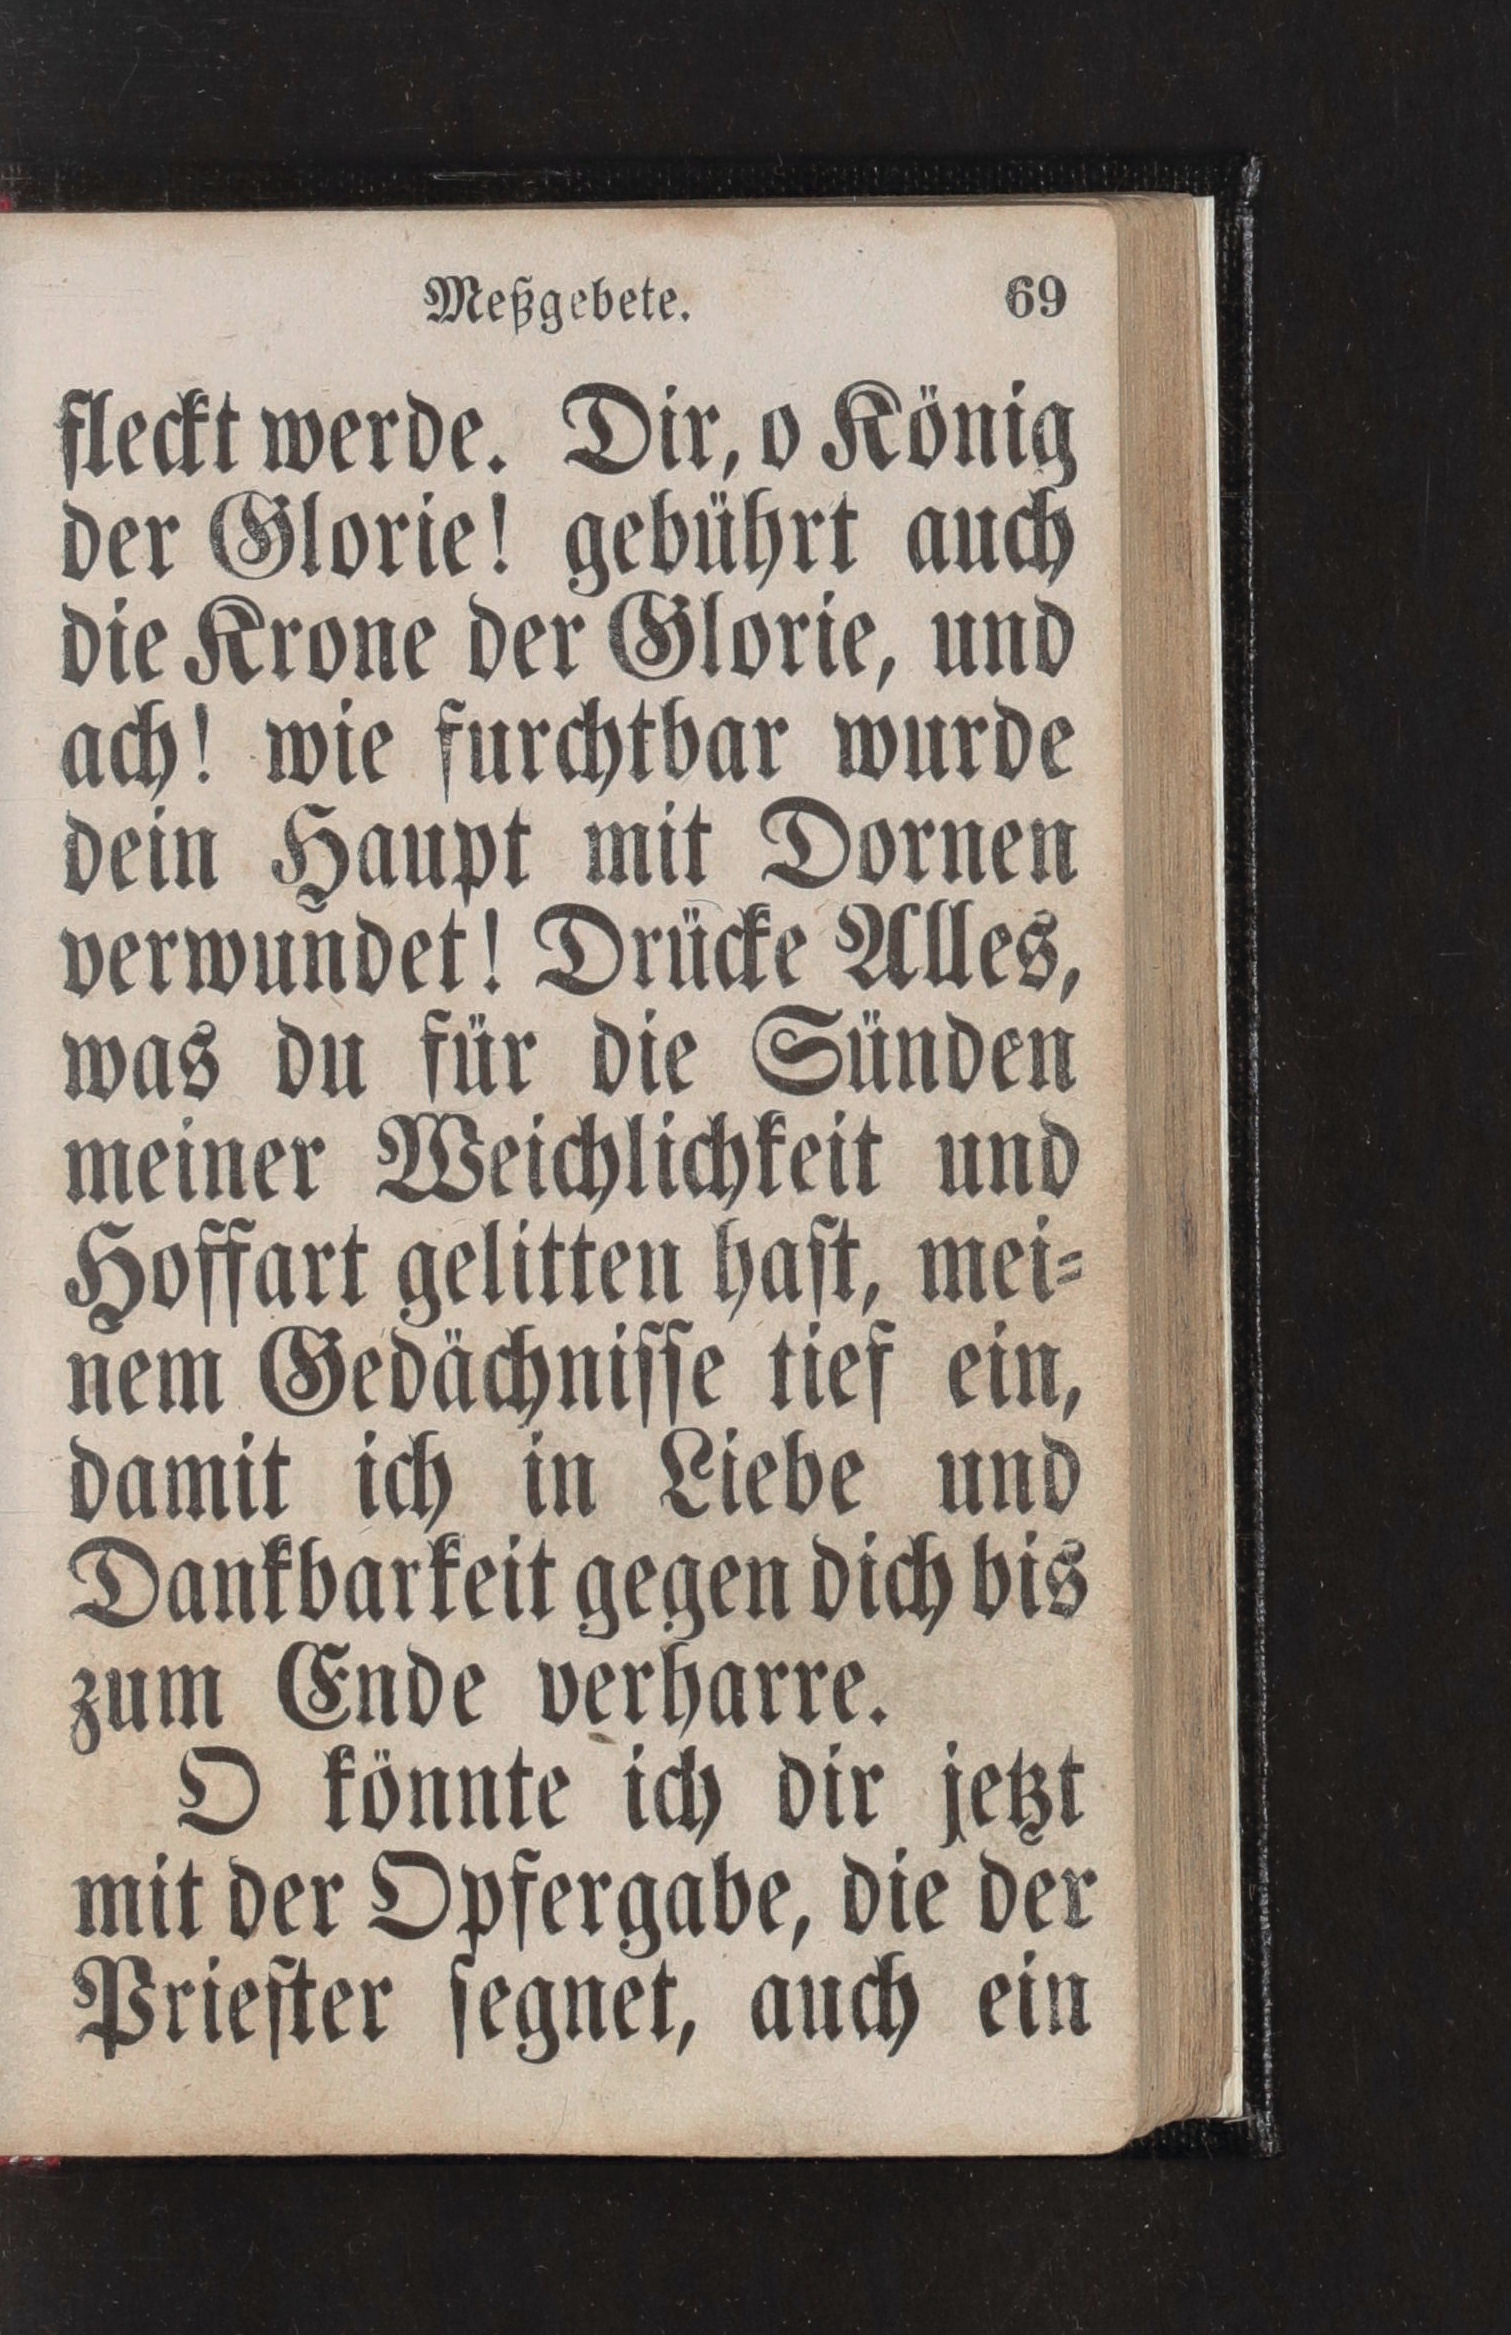 Meßgebete. 69
fleckt werde. Dir, o König
der Glorie! gebührt auch
die Krone der Glorie, und
ach! wie furchtbar wurde
dein Haupt mit Dornen
verwundet! Drücke Alles,
was du für die Sünden
meiner Weichlichkeit und
Hoffart gelitten haſt, mei⸗
nem Gedächniſſe tief ein,
damit ich in Liebe und
Dankbarkeit gegen dich bis
zum Ende verharre.
O könnte ich dir jetzt
mit der Opfergabe, die der
Prieſter ſegnet, auch ein